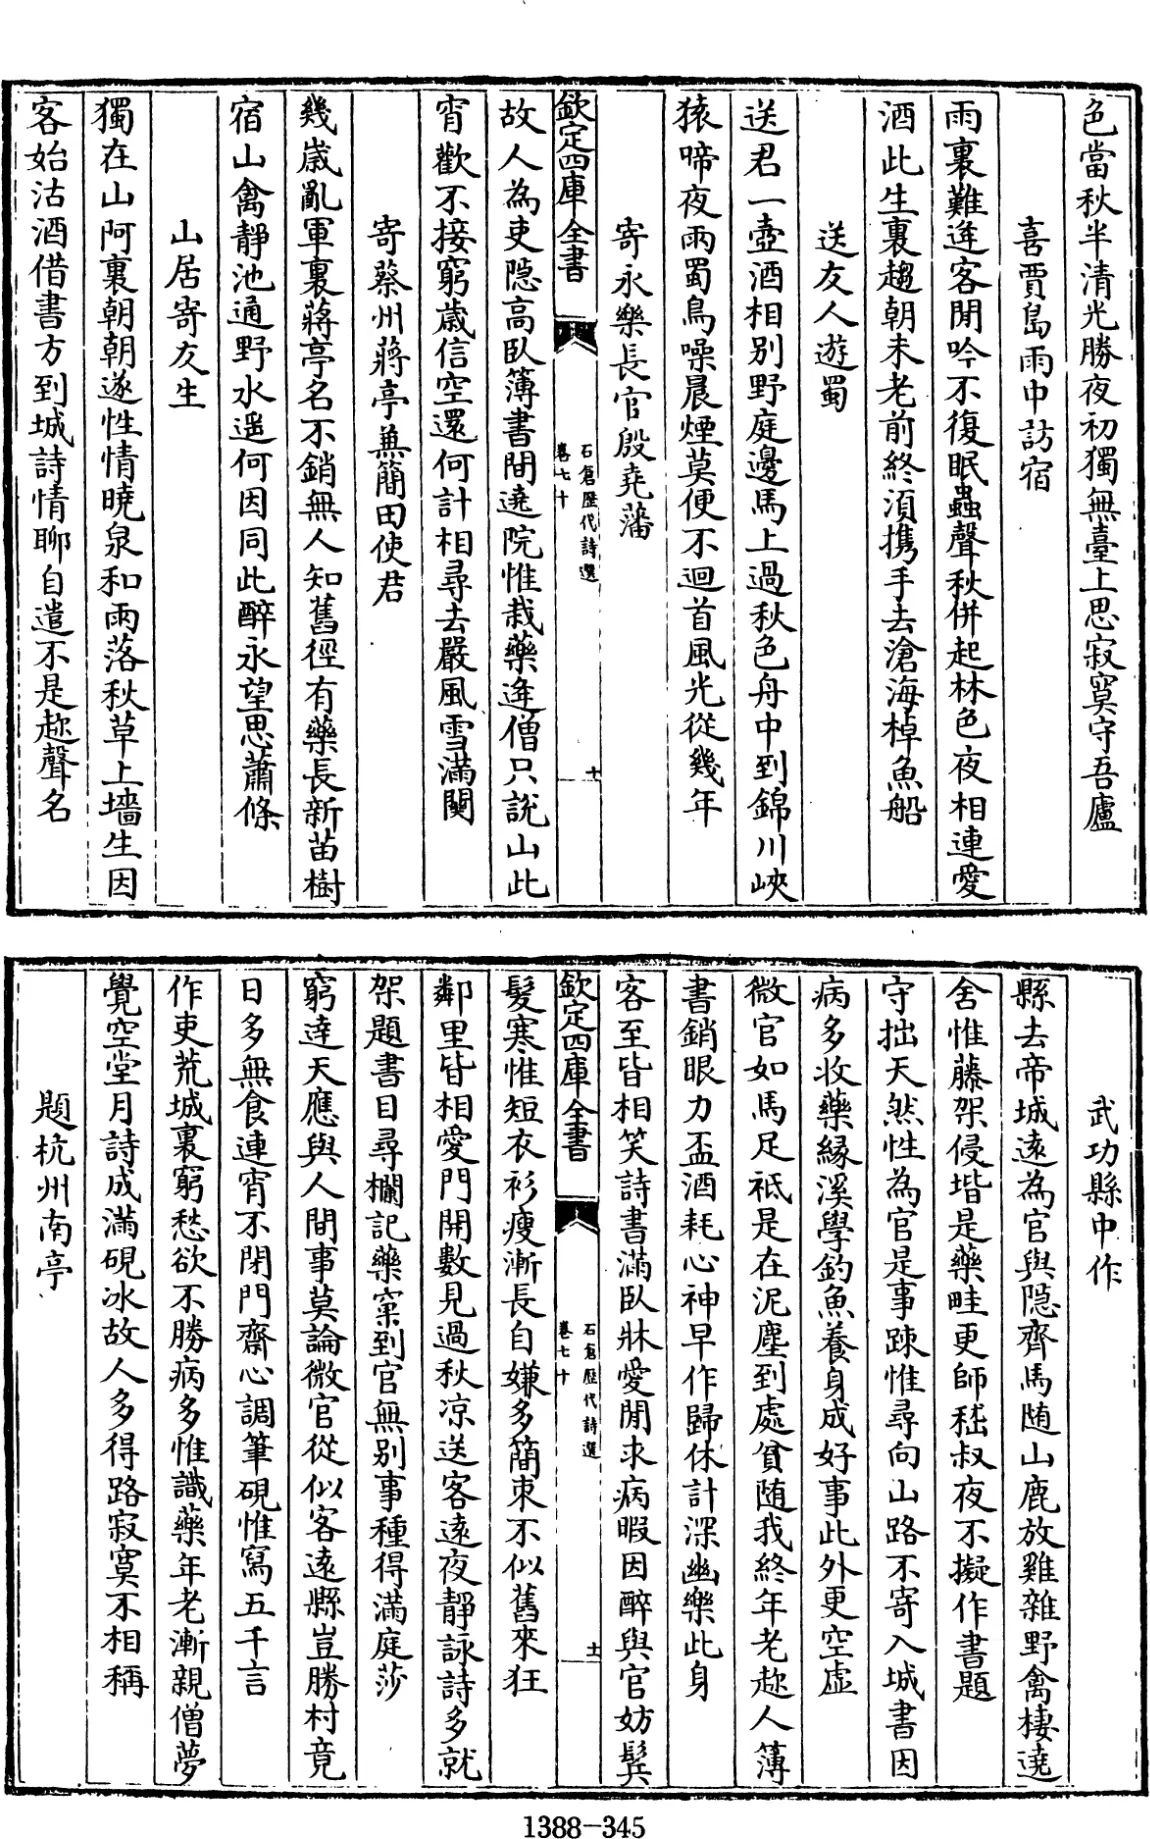 色當秋半清光勝夜初獨無臺上思寂寞守吾廬
喜賈島雨中訪宿
雨裏難逢客閒吟不復眠蟲聲秋併起林色夜相連愛
酒此生裏趨朝未老前終須攜手去滄海棹魚船
送友人遊蜀
送君一壺酒相别野庭邊馬上過秋色舟中到錦川峽
猿啼夜雨蜀鳥噪晨煙莫便不迴首風光從幾年
寄永樂長官殷堯藩
欽定四庫全書
石倉歷代詩選
卷七十
十
故人為吏隱高臥簿書間遶院惟栽藥逢僧只説山此
宵歡不接窮歲信空還何計相尋去嚴風雪滿關
寄蔡州蔣亭兼簡田使君
幾歲亂軍裏蔣亭名不銷無人知舊徑有藥長新苗樹
宿山禽靜池通野水遥何因同此醉永望思蕭條
山居寄友生
獨在山阿裏朝朝遂性情曉泉和雨落秋草上墻生因
客始沽酒借書方到城詩情聊自遣不是趂聲名
武功縣中作
縣去帝城遠為官與隱齊馬随山鹿放雞雜野禽棲遶
舍惟藤架侵堦是藥畦更師嵇叔夜不擬作書題
守拙天然性為官是事踈惟尋向山路不寄入城書因
病多收藥緣溪學釣魚養身成好事此外更空虛
微官如馬足祗是在泥塵到處貧随我終年老趂人薄
書銷眼力盃酒耗心神早作歸休計深幽樂此身
客至皆相笑詩書滿臥牀愛閒求病暇因醉與官妨鬂
欽定四庫全書
石倉歷代詩選
卷七十
十一
髮寒惟短衣衫瘦漸長自嫌多簡束不似舊來狂
鄰里皆相愛門開數見過秋凉送客遠夜靜詠詩多就
架題書目尋欄記藥窠到官無别事種得滿庭莎
窮達天應與人間事莫論微官從似客遠縣豈勝村竟
日多無食連宵不閉門齋心調筆硯惟寫五千言
作吏荒城裏窮愁欲不勝病多惟識藥年老漸親僧夢
覺空堂月詩成滿硯冰故人多得路寂寞不相稱
題杭州南亭
1388-345